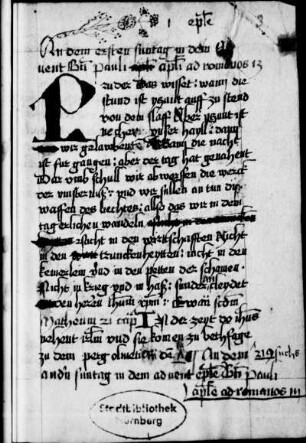 1 eple
An dem ersten suntag in dem Ad
vent Bti Pauli apli ad romanos 13
Pruder Das wisset: wann die
stund ist yczunt auff zu stend
von dem slaff Aber yczunt ist
necher unser hayll: dann
do wir gelaubeten Wann die nacht
ist fur gangen: aber der tag hat genahent
Dar umb schull wir abwerffen die werck
der vinsternuß: und wir sullen an tun die
waffen des liechtes: also das wir in dem
tag erlichen wandeln
nicht in den wirtschafften Nicht
in den trunckenheyten: nicht in den
kemerlein und in den petten der schanen
Nicht in krieg und in haß: sunder cleydet
den herrn ihum xpm:
Matheum 21 capit In der zeyt do ihus
nehent irlm und sie komen zu bethfage
zu dem perg oliueti An dem 21 suchs
andn suntag in dem advent eple Bti Pauli
aple ad romanos 15
Stadtbibliothek
Nürnberg